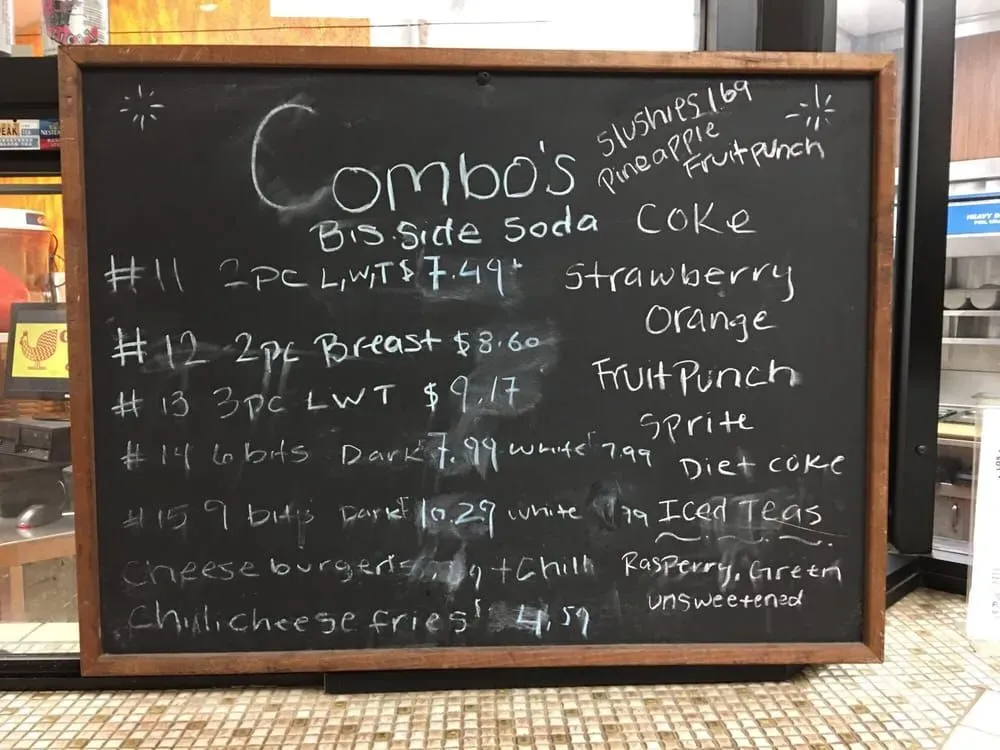 Combo's
Bis. side Soda
#11 2pc L,W,T $7.49
#12 2pc Breast $8.60
#13 3pc LWT $9.17
#14 6 bits Dark 7.99 white 7.99
#15 9 bits Dark 10.29 white
Cheese burger + Chili
Chili cheese fries 4.59
Slushies 169
Pineapple
Fruit punch
Coke
Strawberry
Orange
Fruit Punch
Sprite
Diet coke
Iced Teas
Rasperry, Green
unsweetened